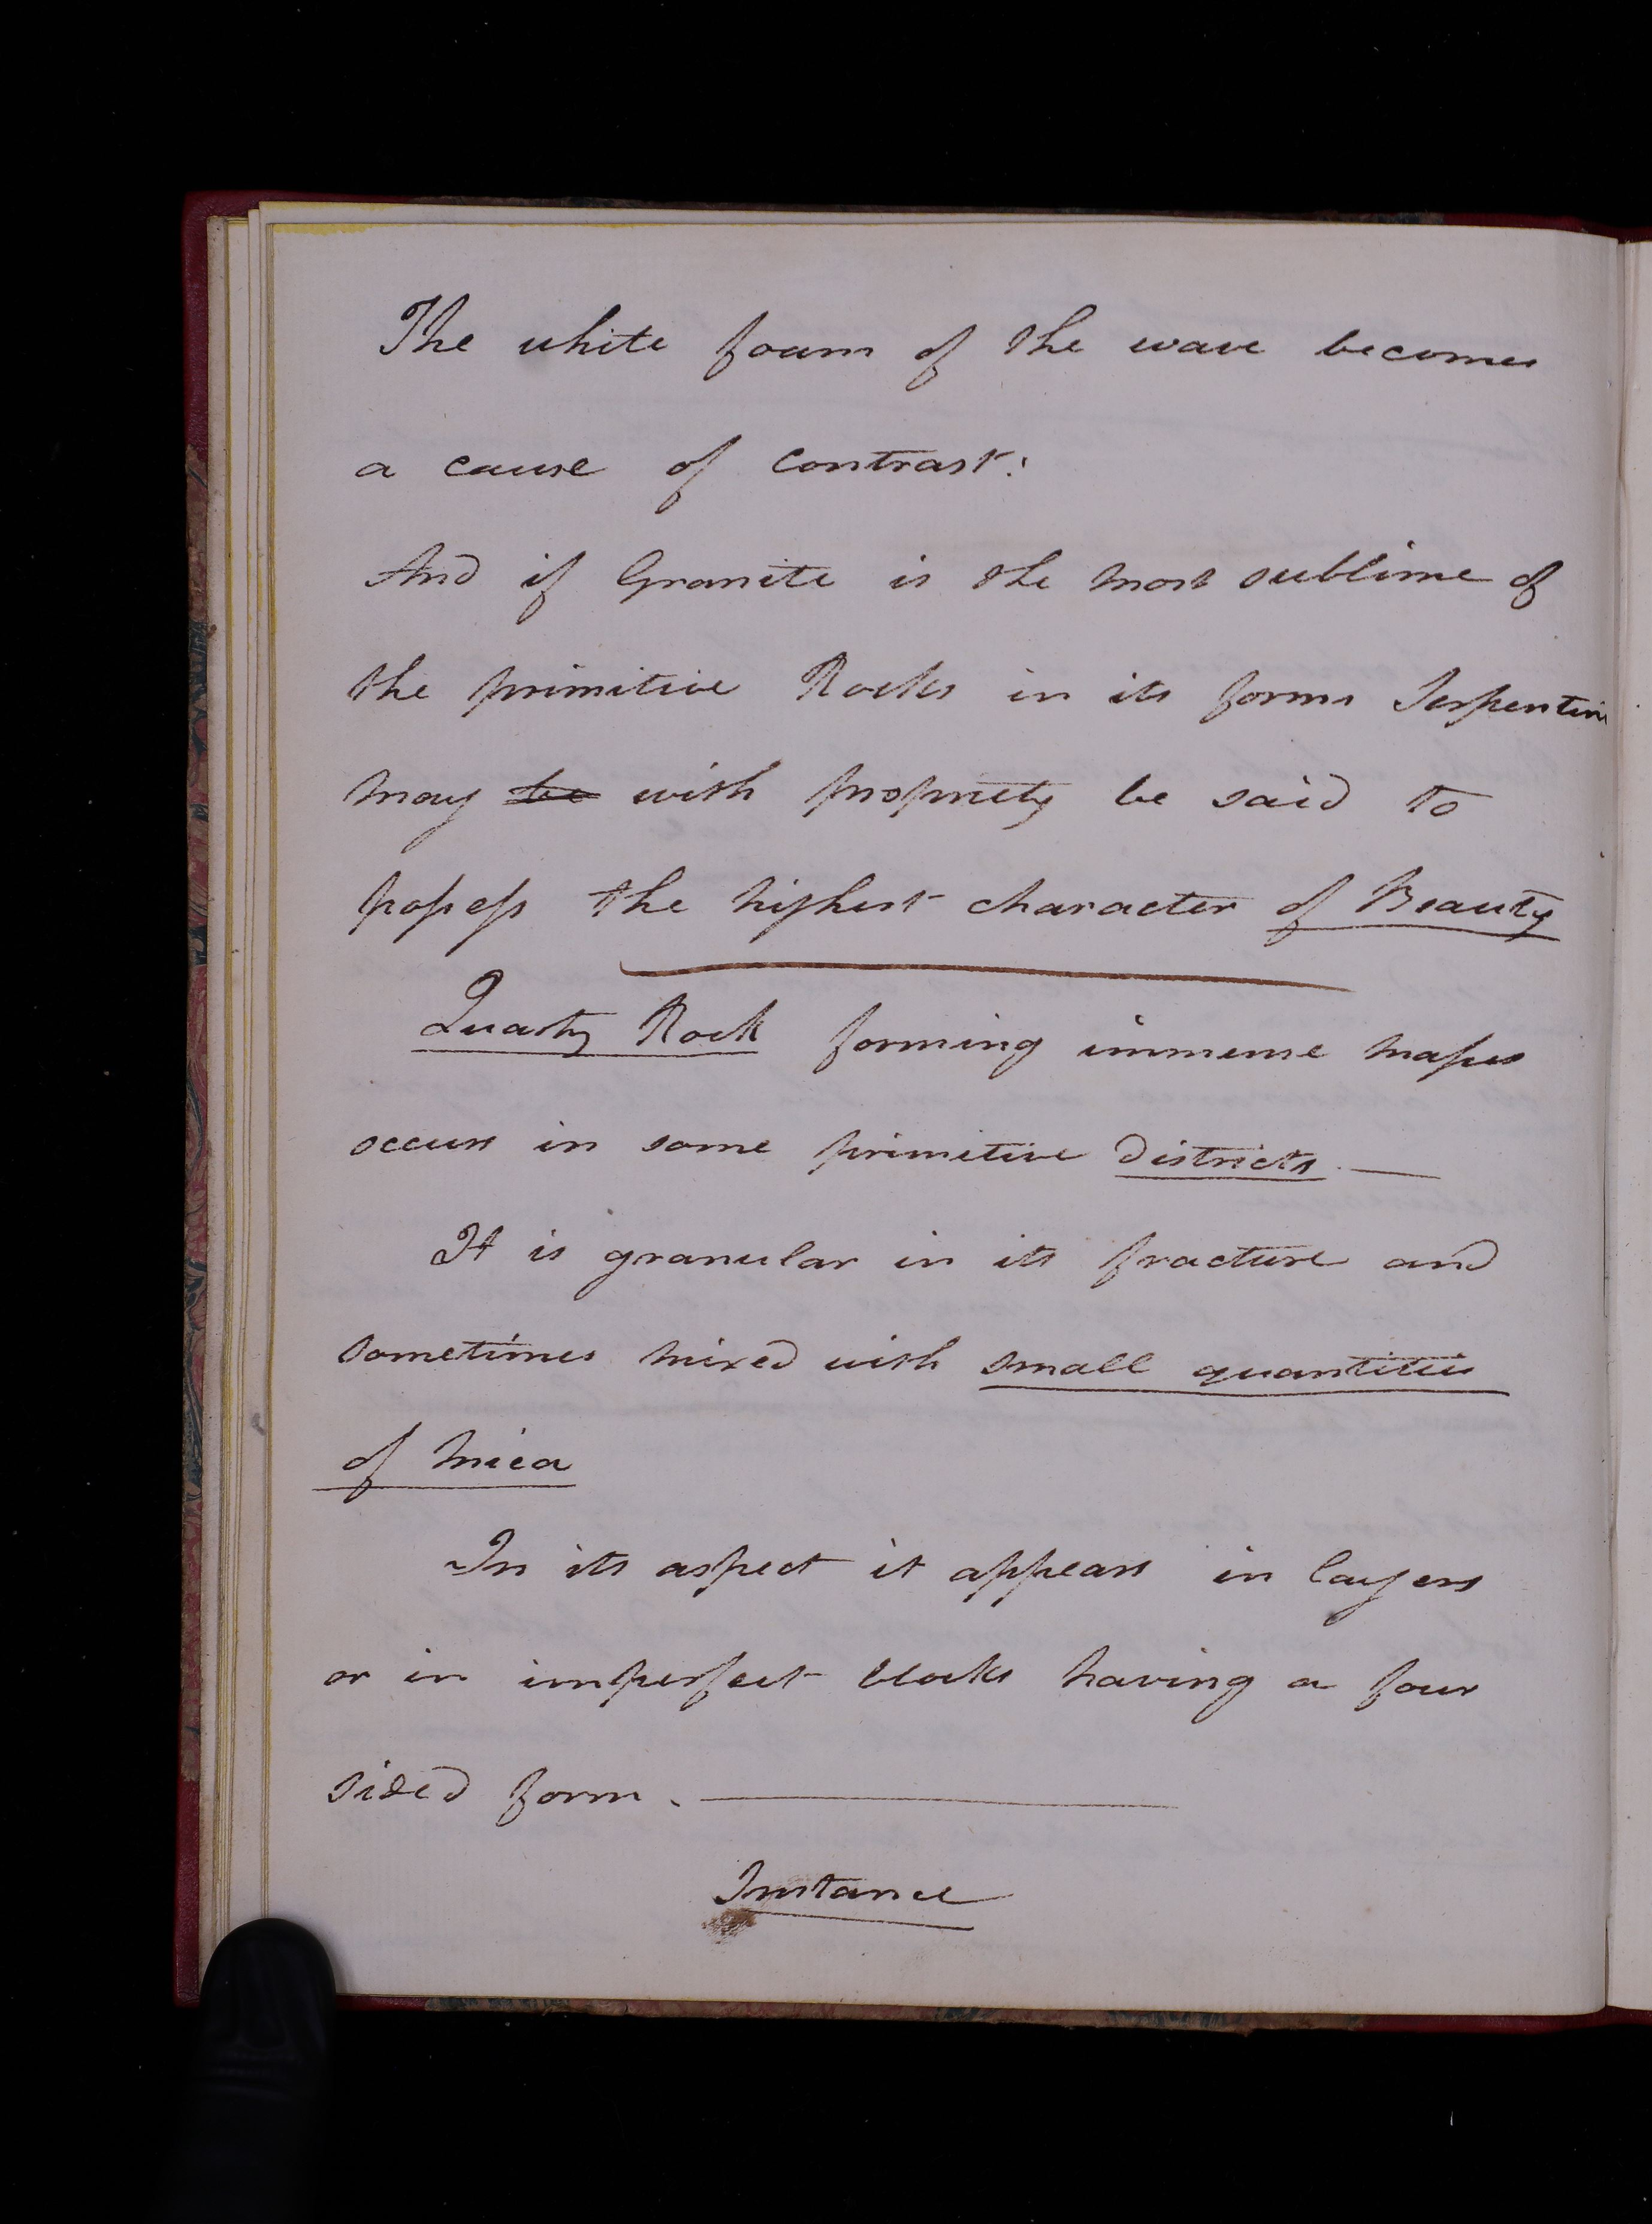 The white foam of the wave becomes
a cause of contrast:
And if Granite is the most sublime of
the primitive Rocks in its forms Serpentin
may be with propriety be said to
possess the highest character of Beauty
Quartz Rock forming immense masses
occurs in some primitive districts. —
It is granular in its fracture and
sometimes mixed with small quantities
of mica
In its aspect it appears in layers
or in imperfect blocks having a four
sided form. —
Instance